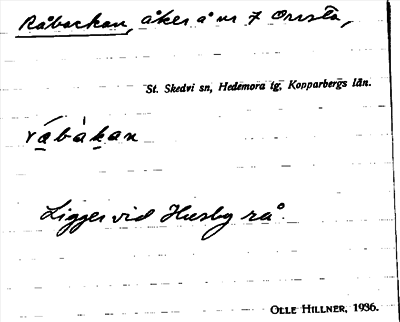 Råbackan, åker å nr 7 Orrsta,
St. Skedvi sn, Hedemora tg, Kopparbergs län.
råbàkan
Ligger vid Husby rå.
OLLE HILLNER, 1936.